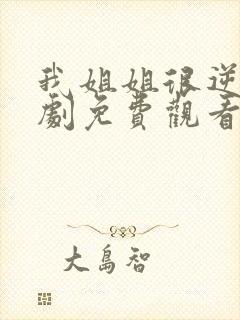 我姐姐很逆
劇免費觀看
大島智